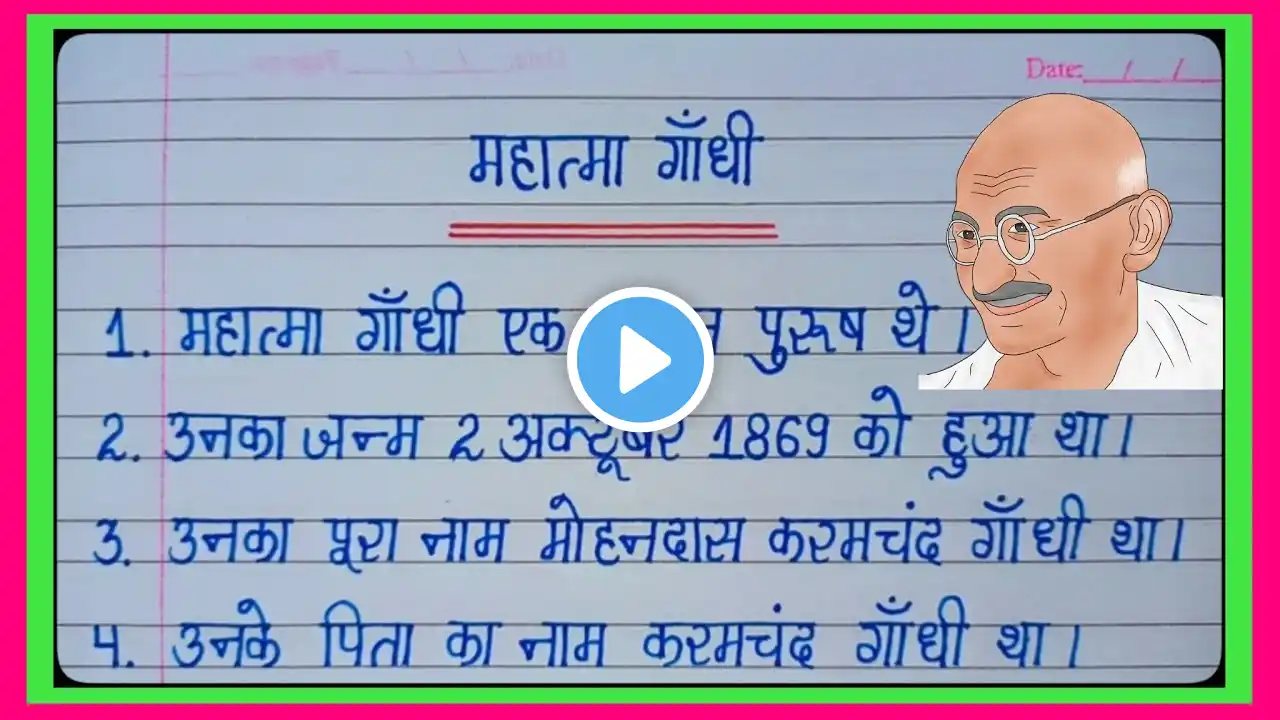 Date: / /
महात्मा गाँधी
1. महात्मा गाँधी एक पुरूष थे।
2. उनका जन्म 2 अक्टूबर 1869 को हुआ था।
3. उनका पूरा नाम मोहनदास करमचंद गाँधी था।
4. उनके पिता का नाम करमचंद गाँधी था।